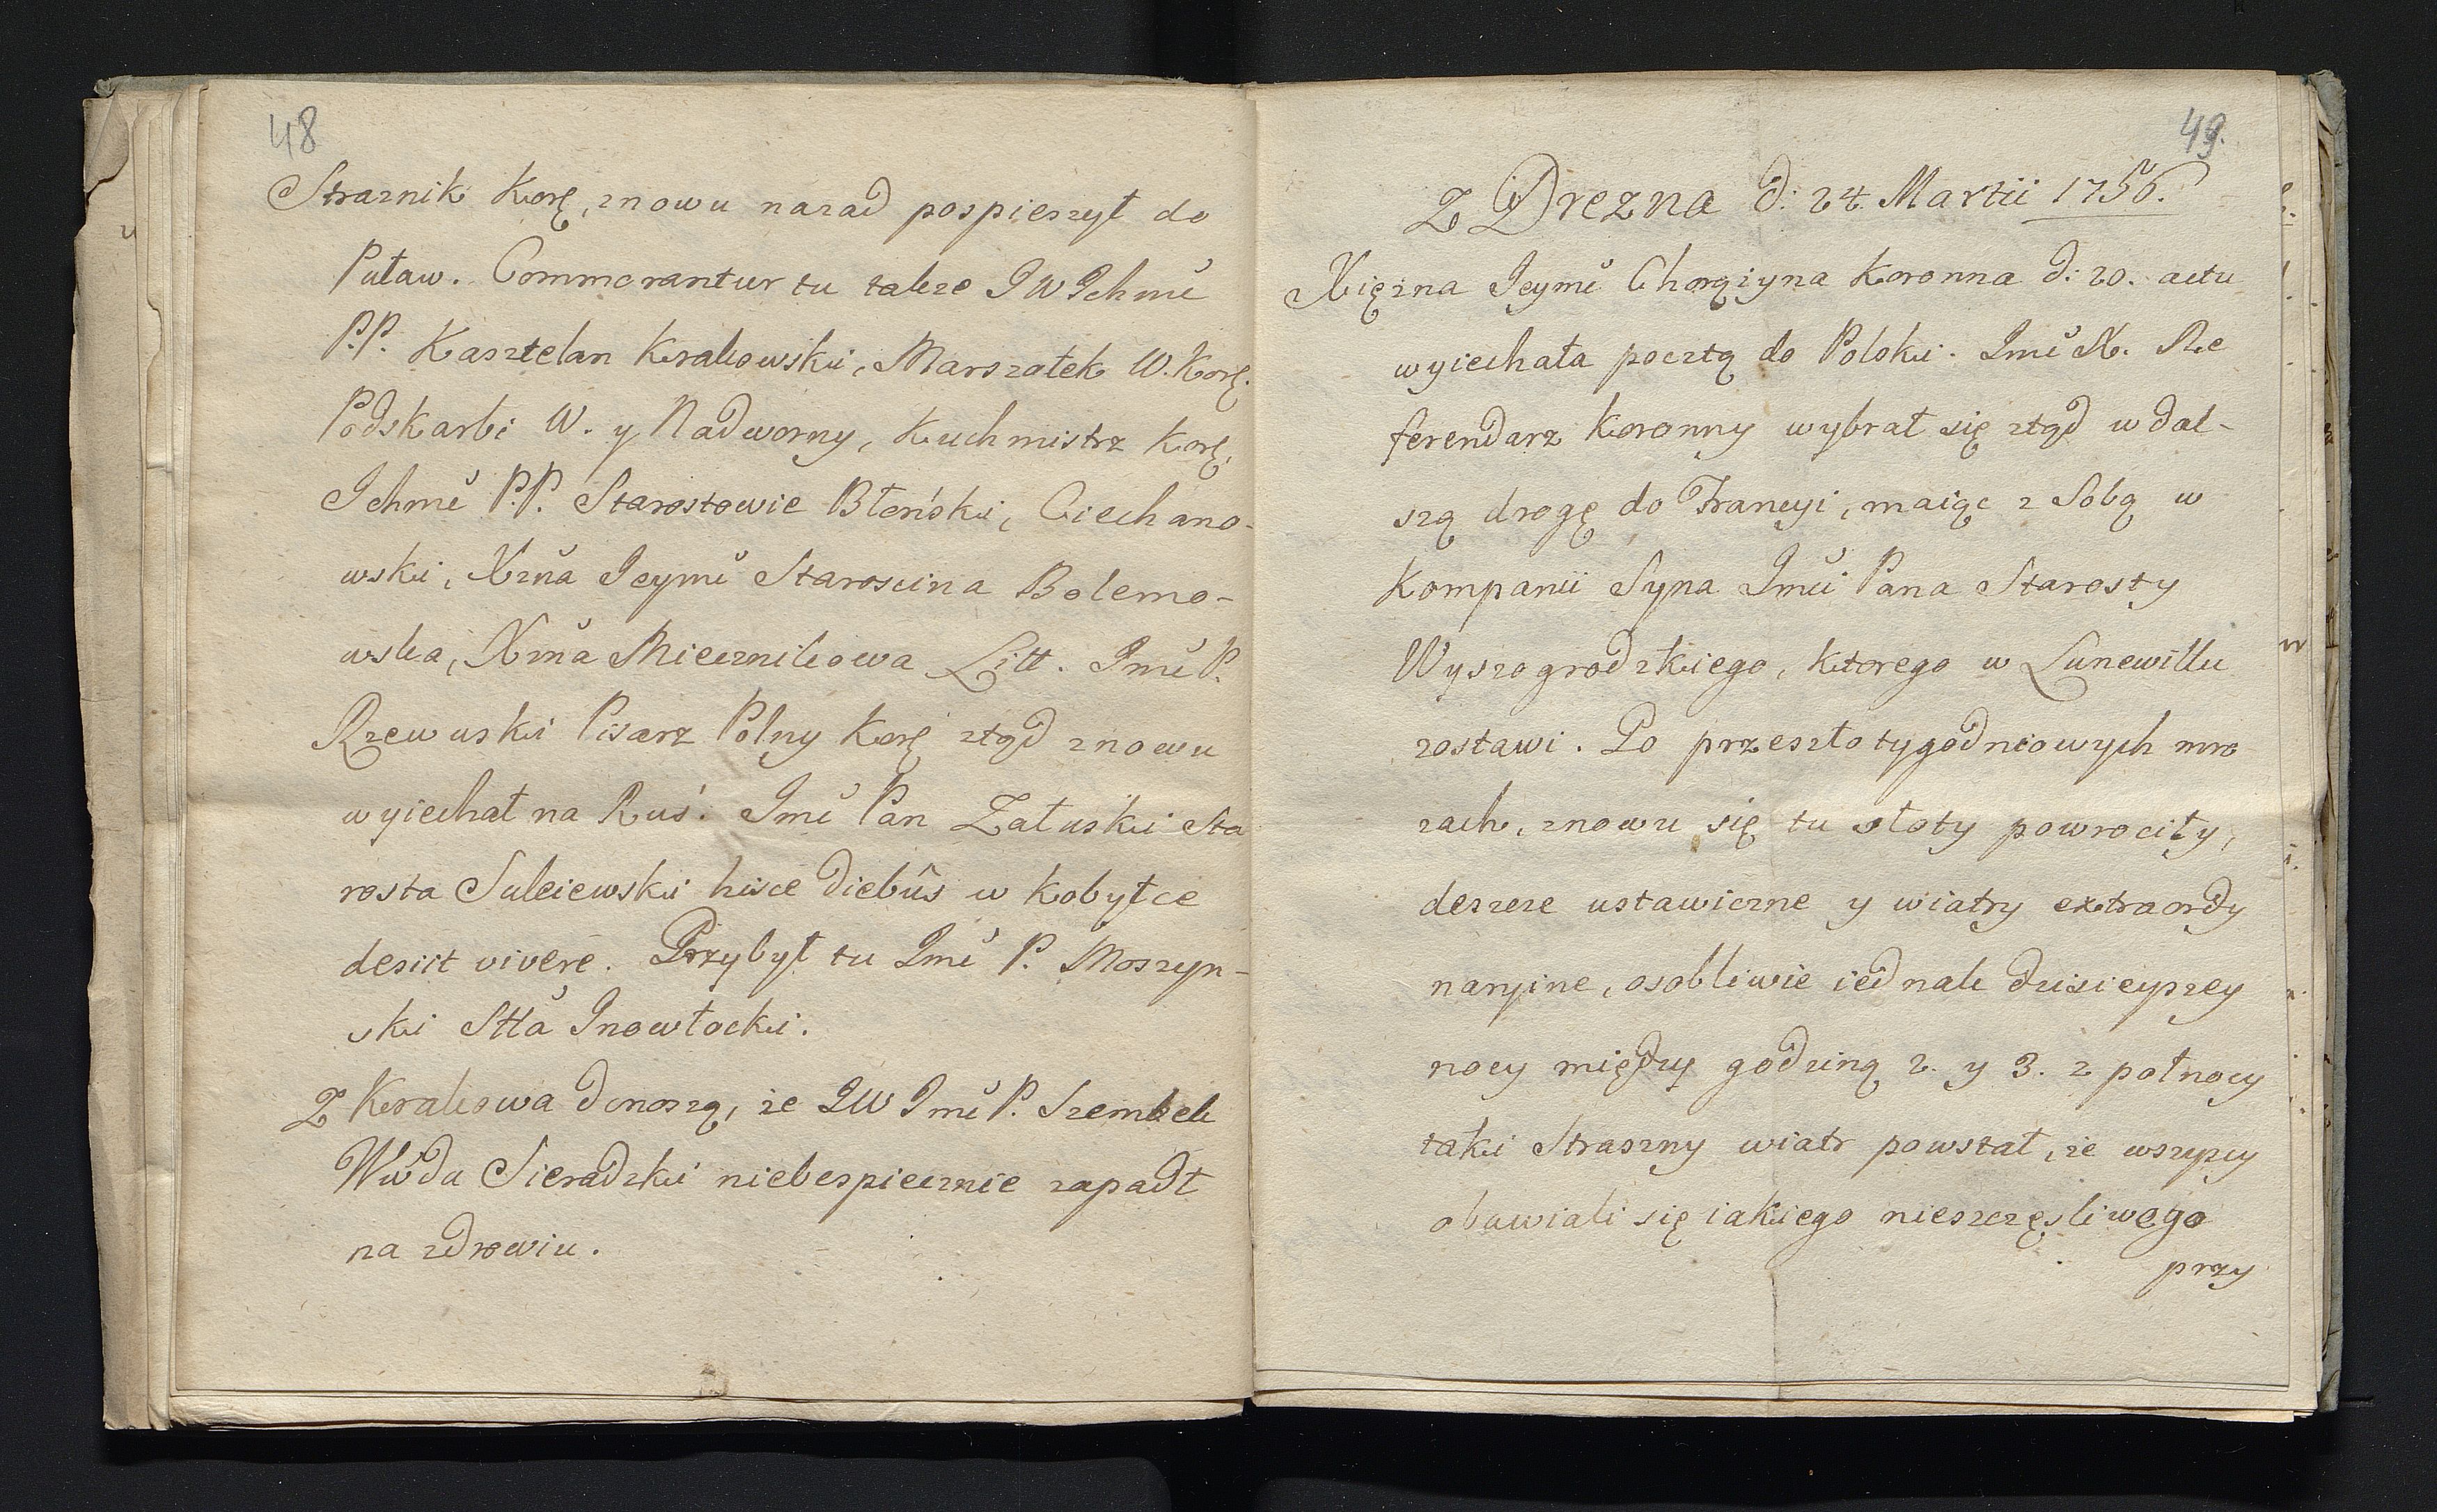 48
Straznik Korę, znowu nazad pospieszył do
Puław. Commorantur tu także JWIchmć
P.P. Kasztelan Krakowski, Marszałek W. Korę.
Podskarbi W. y Nadworny, Kuchmistrz Korę.
Ichmć P.P. Starostowie Błoński, Ciechano-
wski, Xżna Jeymć Staroscina Bolemo-
wska, Xżna Miecznikowa Litt. Jmć P.
Rzewuski Pisarz Polny Korę ztąd znowu
wyiechał na Ruś. Jmć Pan Załuski Sta
rosta Suleiewski hisce diebûs w Kobyłce
desiit vivere. Przybył tu Jmć P. Moszyn-
ski Stta Inowłocki.
Z Krakowa donoszą, że JW Jmć P. Szembek
Wwda Sieradzki niebespiecznie zapadł
na zdrowiu.
49.
Z Drezna d: 24. Martii 1756.
Xiężna Jeymć Chorążyna Koronna d: 20. actu
wyiechała pocztą do Polski. Jmć X. Re
ferendarz Koronny wybrał się ztąd w dal-
szą drogę do Francyi, maiąc z Sobą w
Kompanii Syna Jmći Pana Starosty
Wyszogrodzkiego, ktorego w Lunewillu
zostawi. Po przeszło tygodniowych mro
zach, znowu się tu słoty powrociły,
deszcze ustawiczne y wiatry extraordy
naryine, osobliwie iednak dzisieyszey
nocy między godziną 2. y 3. z połnocy
taki Straszny wiatr powstał, że wszyscy
obawiali się iakiego nieszczęsliwego
przy